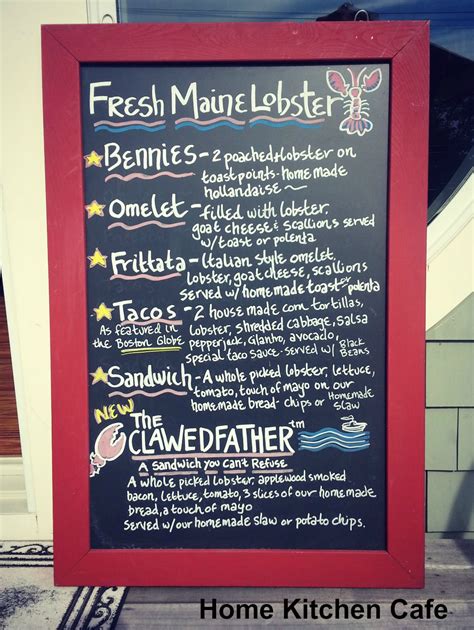 Fresh Maine Lobster
Bennies - 2 poached + lobster on
toast points - homemade
hollandaise ~
Omelet - filled with lobster,
goat cheese & scallions served
w/toast or polenta
Frittata - Italian style omelet,
lobster, goat cheese, scallions
Served w/ homemade toast or polenta
Tacos - 2 house made corn tortillas,
As featured in lobster, shredded cabbage, salsa
the Boston Globe pepperjack, cilantro, avocado,
special taco sauce - served w/ Black Beans
Sandwich - A whole picked lobster, lettuce,
tomato, touch of mayo on our
homemade bread - chips or Homemade Slaw
NEW
The
CLAWEDFATHER™
A Sandwich you Can't Refuse
A whole picked lobster, applewood smoked
bacon, lettuce, tomato, 3 slices of our homemade
bread, a touch of mayo
Served w/our homemade slaw or potato chips.
Home Kitchen Cafe